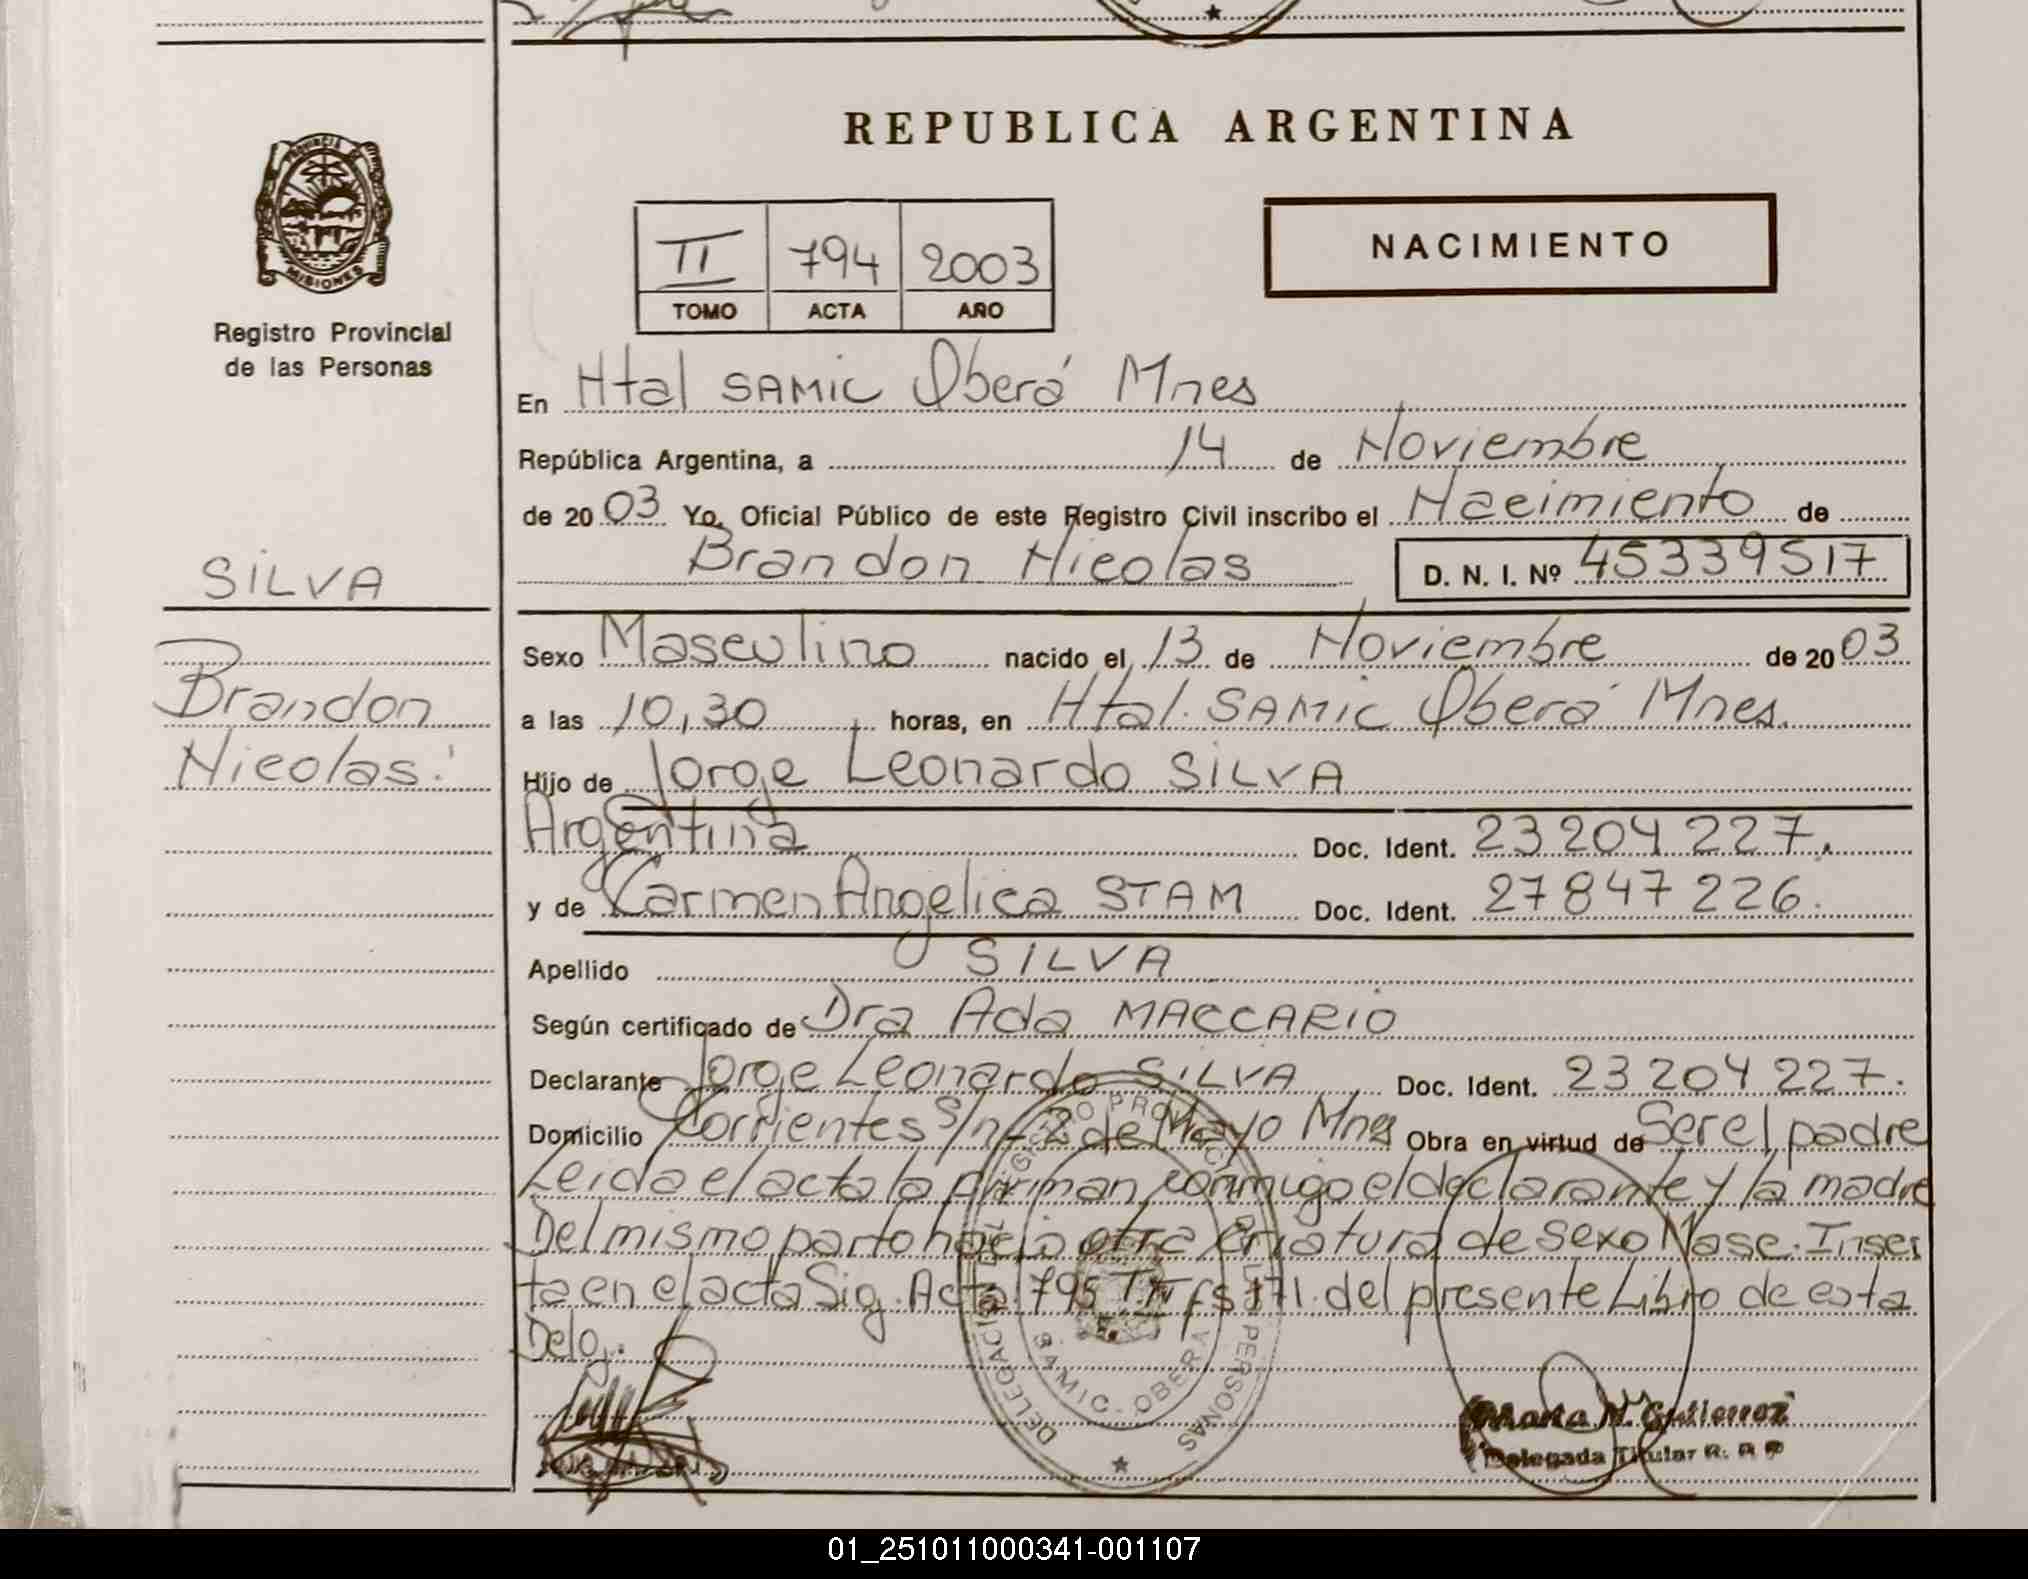 REPUBLICA ARGENTINA
PROVINCIA DE
MISIONES
Registro Provincial
de las Personas
II 794 2003
TOMO ACTA AÑO
NACIMIENTO
En Htal SAMIC Oberá Mnes
República Argentina, a 14 de Noviembre
de 2003 Yo, Oficial Público de este Registro Civil inscribo el Nacimiento de
Brandon Nicolas D. N. I. Nº 45339517
SILVA
Brandon
Nicolas.
Sexo Masculino nacido el 13 de Noviembre de 2003
a las 10,30 horas, en Htal. SAMIC Oberá Mnes.
Hijo de Jorge Leonardo SILVA
Argentina Doc. Ident. 23204227.
y de Carmen Angelica STAM Doc. Ident. 27847226.
Apellido SILVA
Según certificado de Dra Ada MACCARIO
Declarante Jorge Leonardo SILVA Doc. Ident. 23204227.
Domicilio Corrientes S/n- 2 de Mayo Mnes Obra en virtud de Ser el padre
Leida el acta la firman conmigo el declarante y la madre
Del mismo parto nacio otra criatura de sexo Masc. Inscri
ta en el acta Sig. Acta 795 fs 171. del presente Libro de esta
Deleg.
SAMIC - OBERA
Marta N. Gutierrez
Delegada Titular R. P. P.
01_251011000341-001107